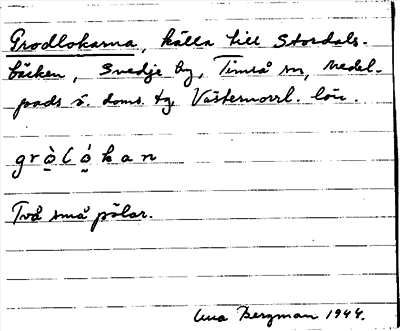 Grodlokarna, källa till Stordals-
bäcken, Svedje by, Timrå sn, Medel-
pads ö. doms. tg Västernorrl. län.
gròlókan
Två små pölar.
Bergman 1944.